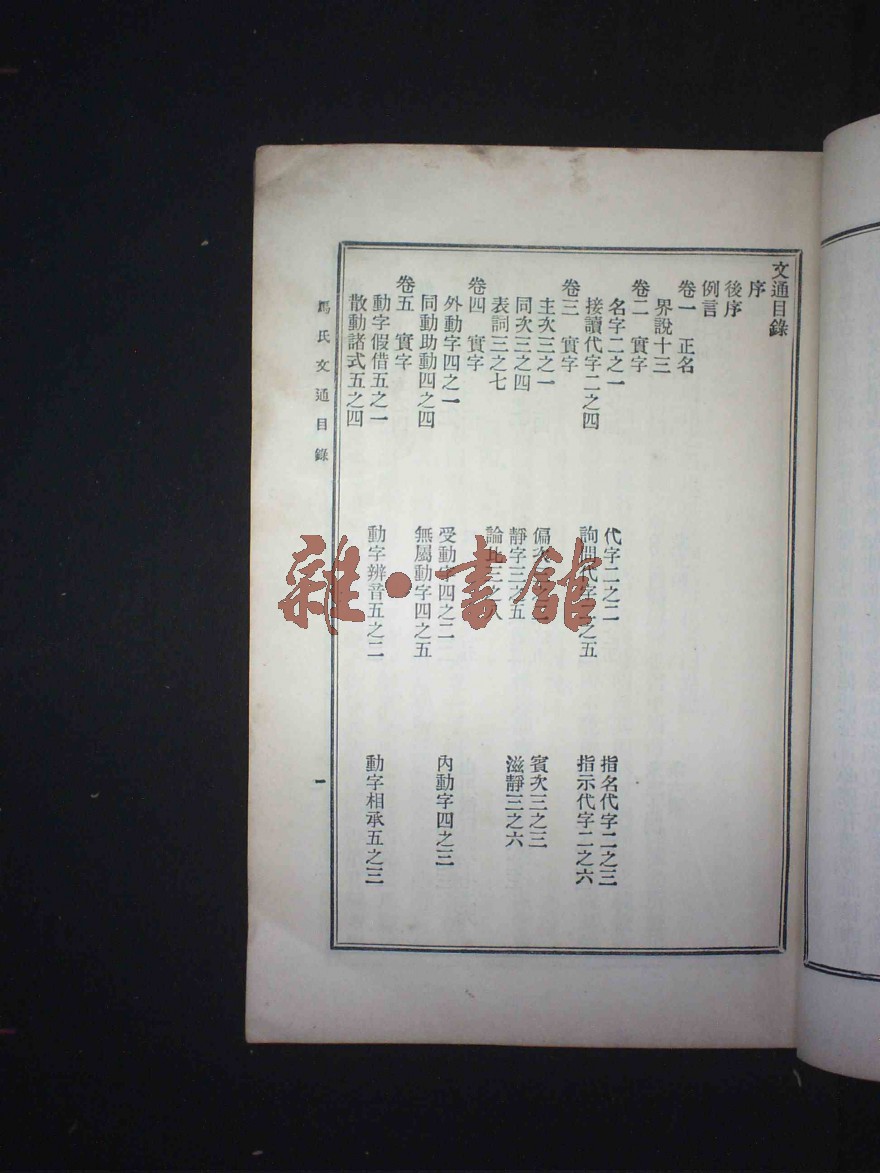 文通目錄
序
後序
例言
卷一 正名
界說十三
卷二 實字
名字二之一 代字二之二 指名代字二之三
接讀代字二之四 詢問代字二之五 指示代字二之六
卷三 實字
主次三之一 偏次三之二 賓次三之三
同次三之四 靜字三之五 滋靜三之六
表詞三之七 論比三之八
卷四 實字
外動字四之一 受動字四之二 內動字四之三
同動助動四之四 無屬動字四之五
卷五 實字
動字假借五之一 動字辨音五之二 動字相承五之三
散動諸式五之四
馬氏文通目錄 一
雜·書館